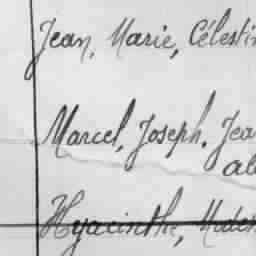 Jean, Marie, Célestin
Marcel, Joseph, Jean
Hyacinthe,